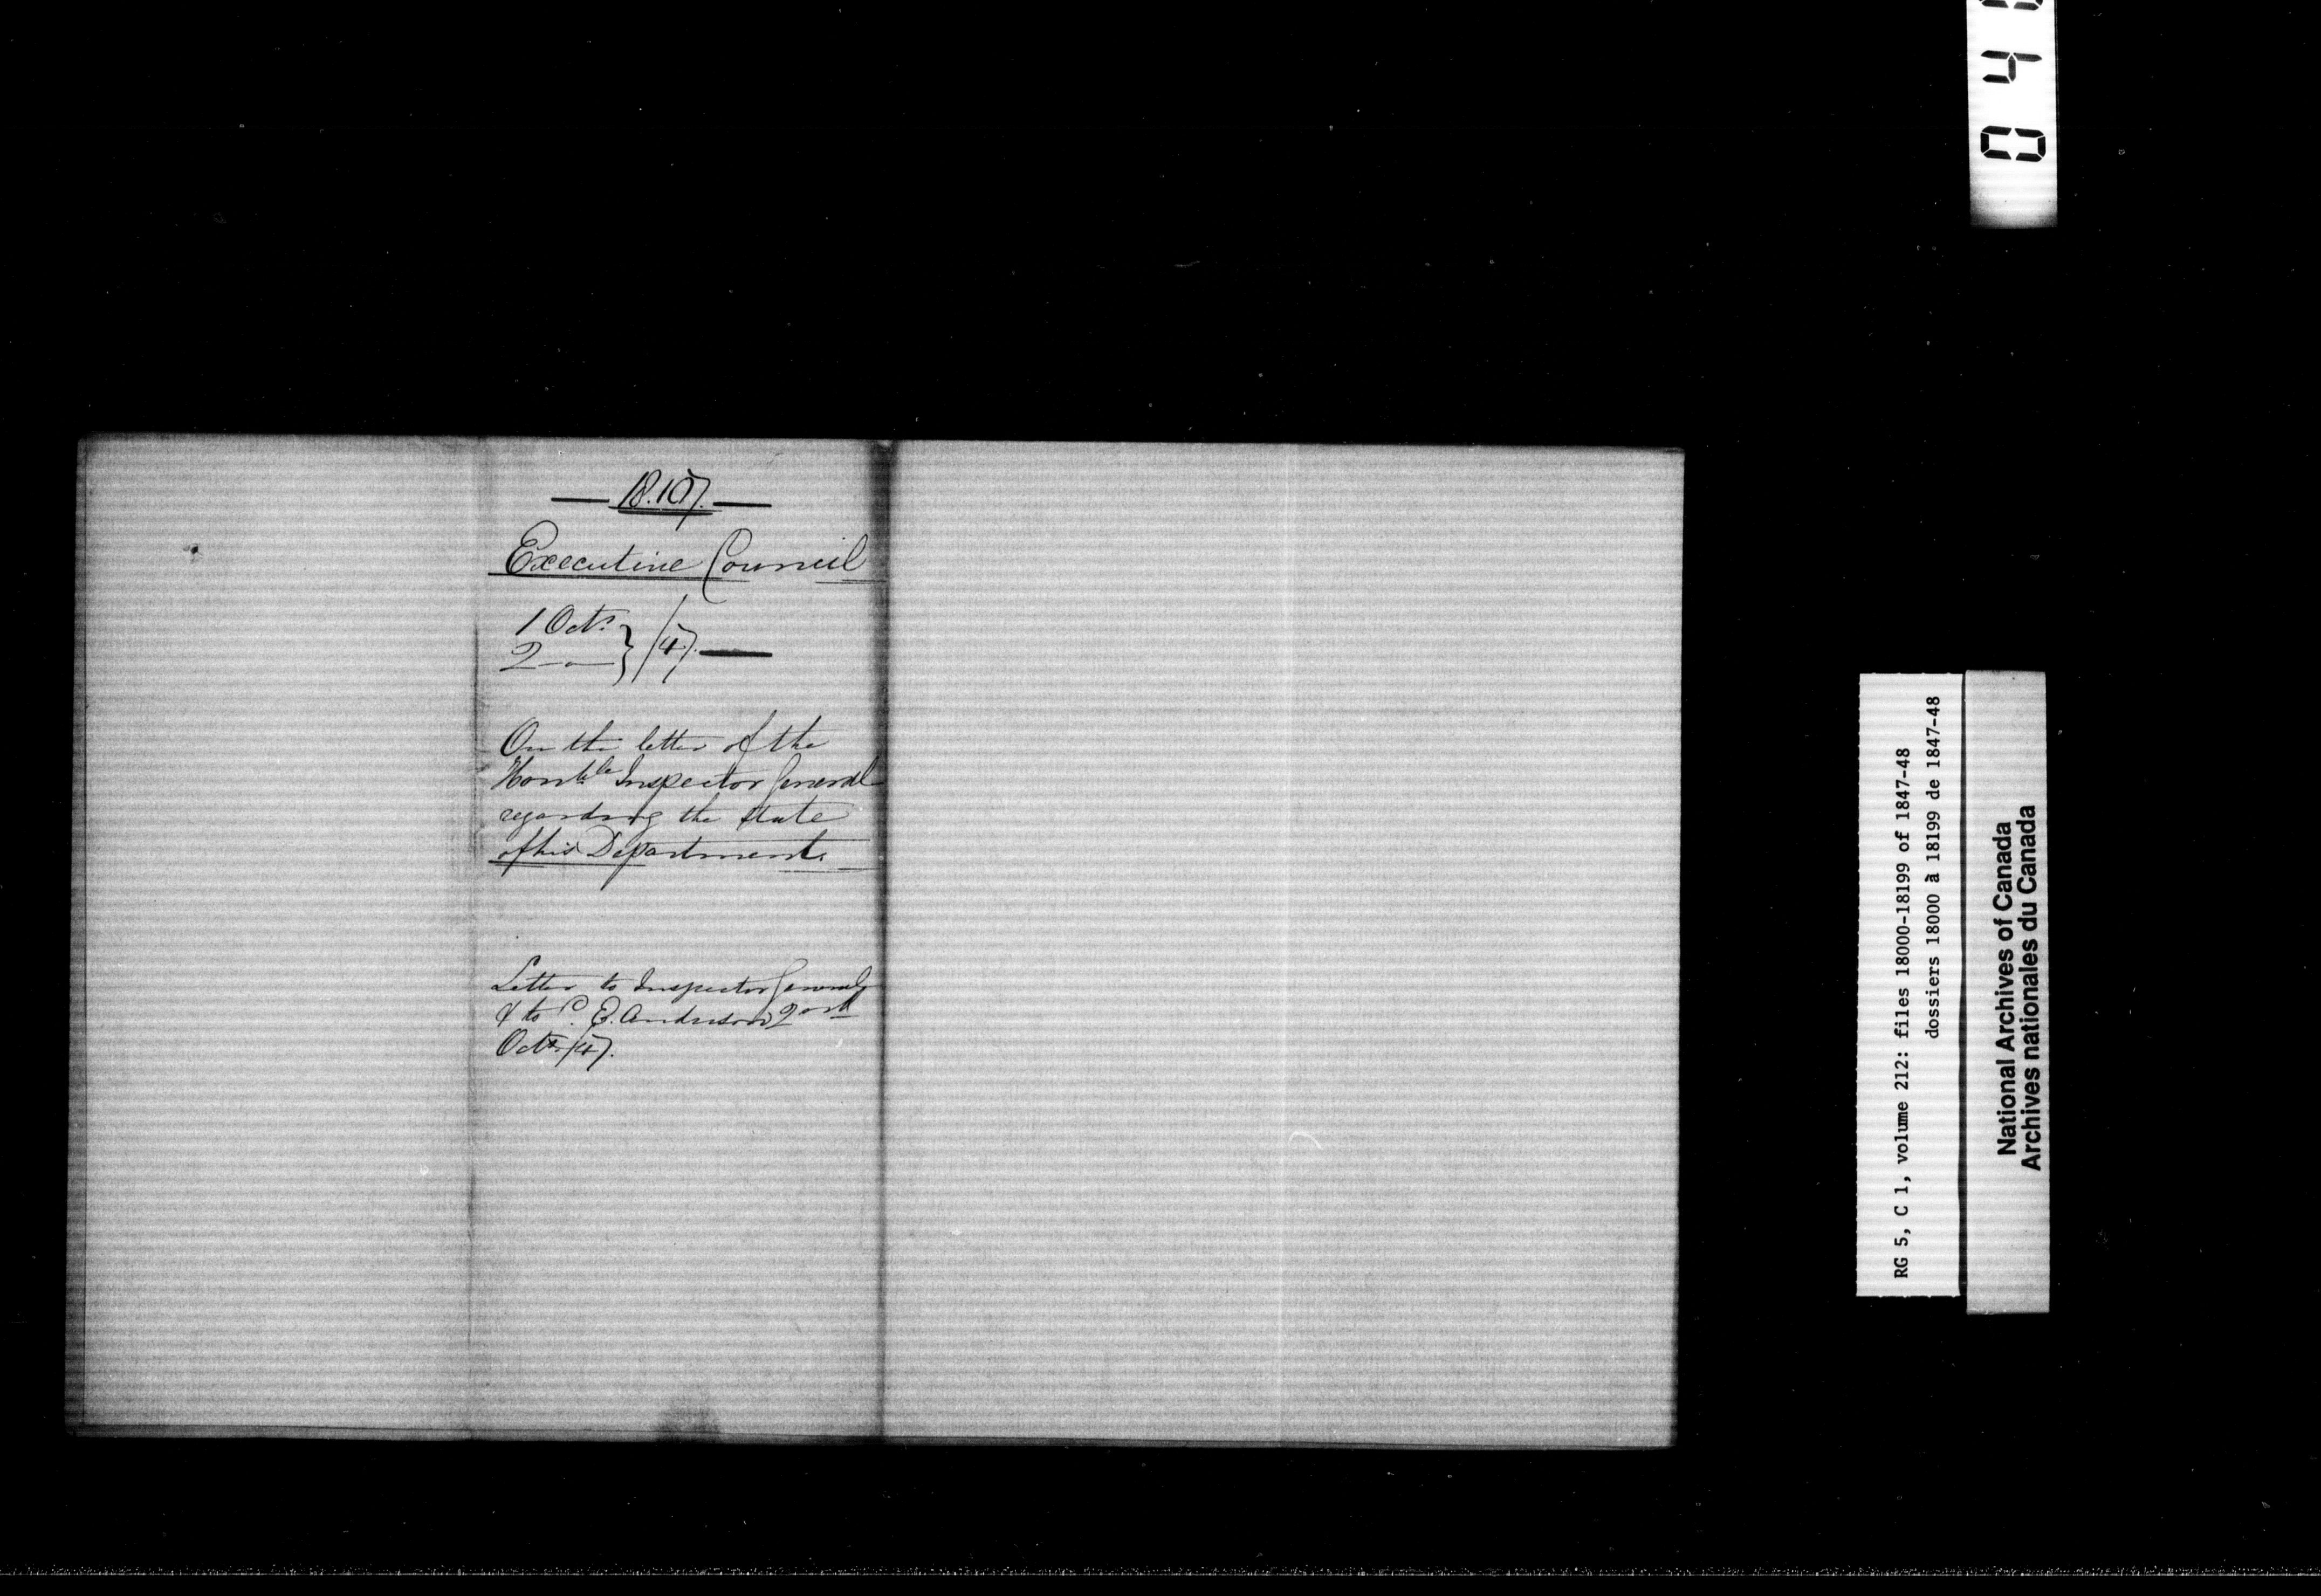 18.107.
Executive Council
1 Octr
2 — " — } /47.
On the letter of the
Honble Inspector General
regarding the state
of his Department.
Letter to Inspector General
& to C. E. Anderson 2nd
Octr /47.
040
RG 5, C 1, volume 212: files 18000-18199 of 1847-48
dossiers 18000 à 18199 de 1847-48
National Archives of Canada
Archives nationales du Canada